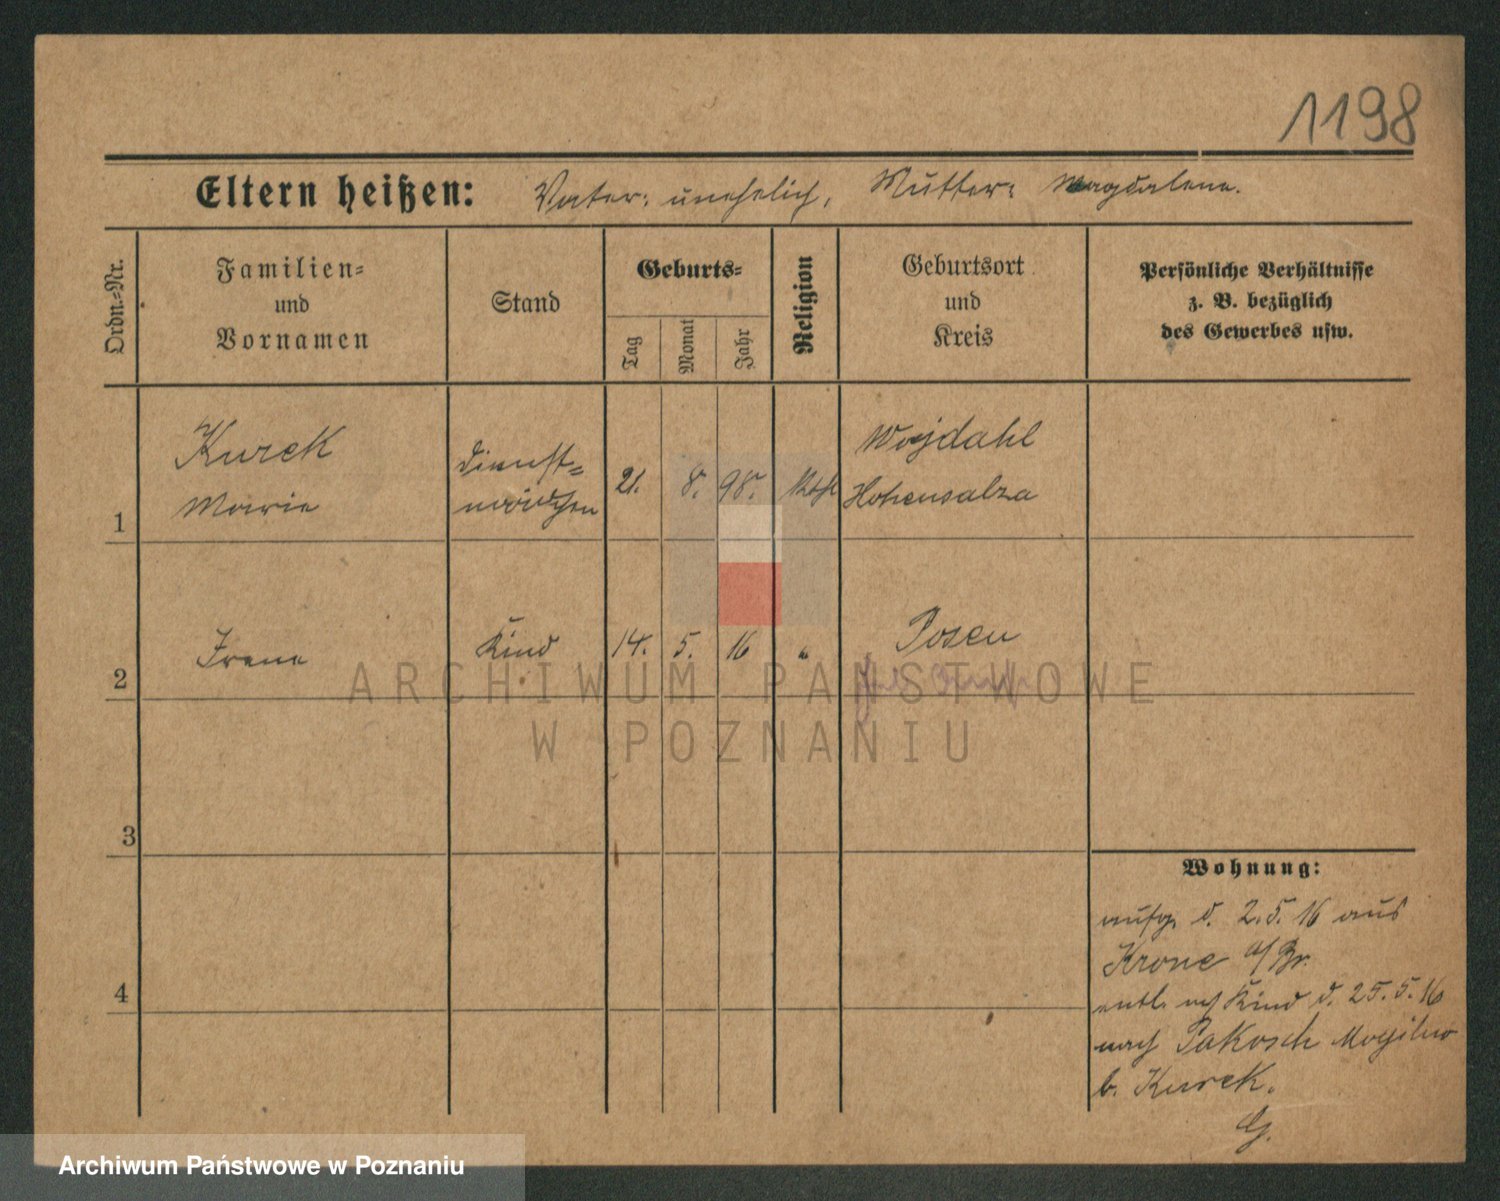 1198
Eltern heißen: Vater: unehelich, Mutter: Magdalena.
Ordn.-Nr.
Familien-
und
Vornamen
Stand
Geburts-
Tag
Monat
Jahr
Religion
Geburtsort
und
Kreis
Persönliche Verhältnisse
z. B. bezüglich
des Gewerbes usw.
1
Kurek
Marie
Dienst-
mädchen
21. 8. 98. kath
Wojdahl
Hohensalza
2
Irena
Kind
14. 5. 16 "
Posen
3
4
Wohnung:
aufg. d. 2.5.16 aus
Krone a/Br.
entl. Kind d. 25.5.16
nach Pakosch Mogilno
b. Kurek.
G.
ARCHIWUM PAŃSTWOWE
W POZNANIU
Archiwum Państwowe w Poznaniu